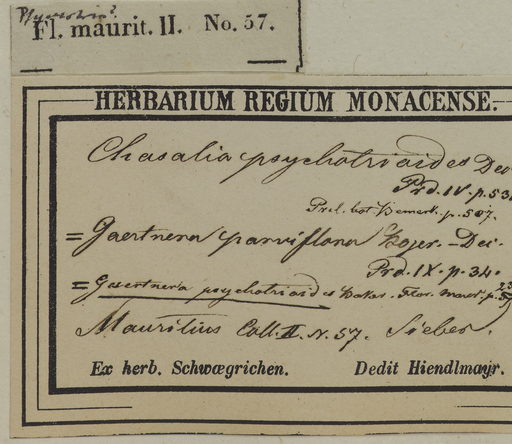 Fl. maurit. II. No. 57.
HERBARIUM REGIUM MONACENSE.
Chasalia psychotrioides Dec
Prd. IV. p. 53
p. 507.
= Gaertnera parviflora Bojer. - Dec.
Prd. IX. p. 34.
= Gaertnera psychotrioides Baker. Flor. Maur. p.
Mauritius Coll. II. N. 57. Sieber.
Ex herb. Schwægrichen. Dedit Hiendlmayr.